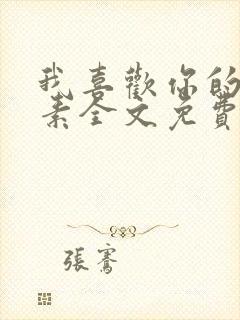 我喜歡你的
素全文免費
張騫